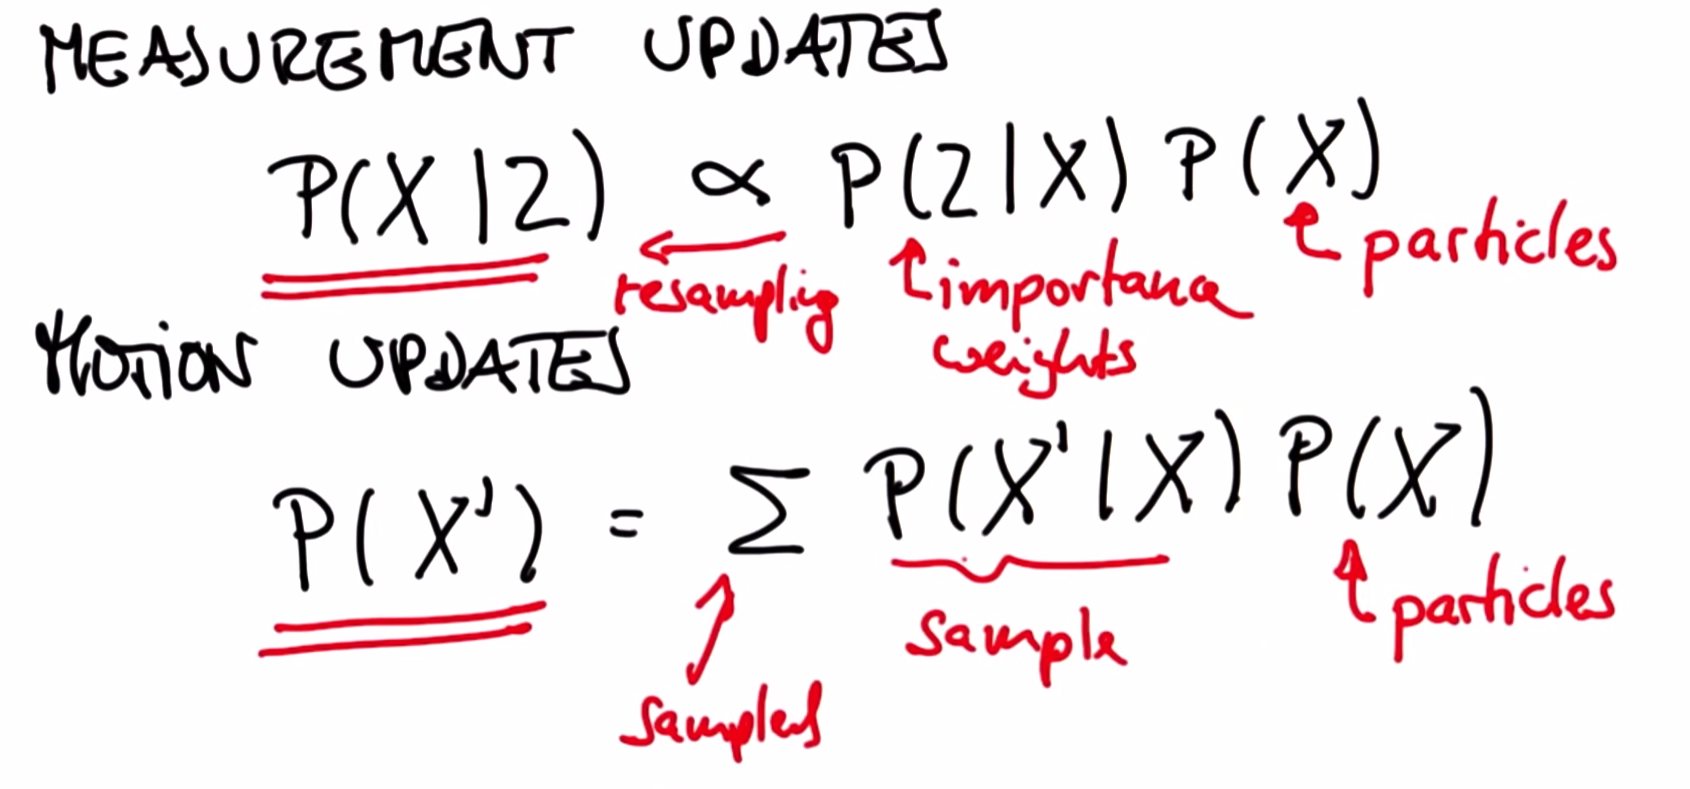 MEASUREMENT UPDATES
P(X|Z) ∝ P(Z|X) P(X)
resampling
importance
weights
particles
MOTION UPDATES
P(X') = Σ P(X'|X) P(X)
sampled
sample
particles